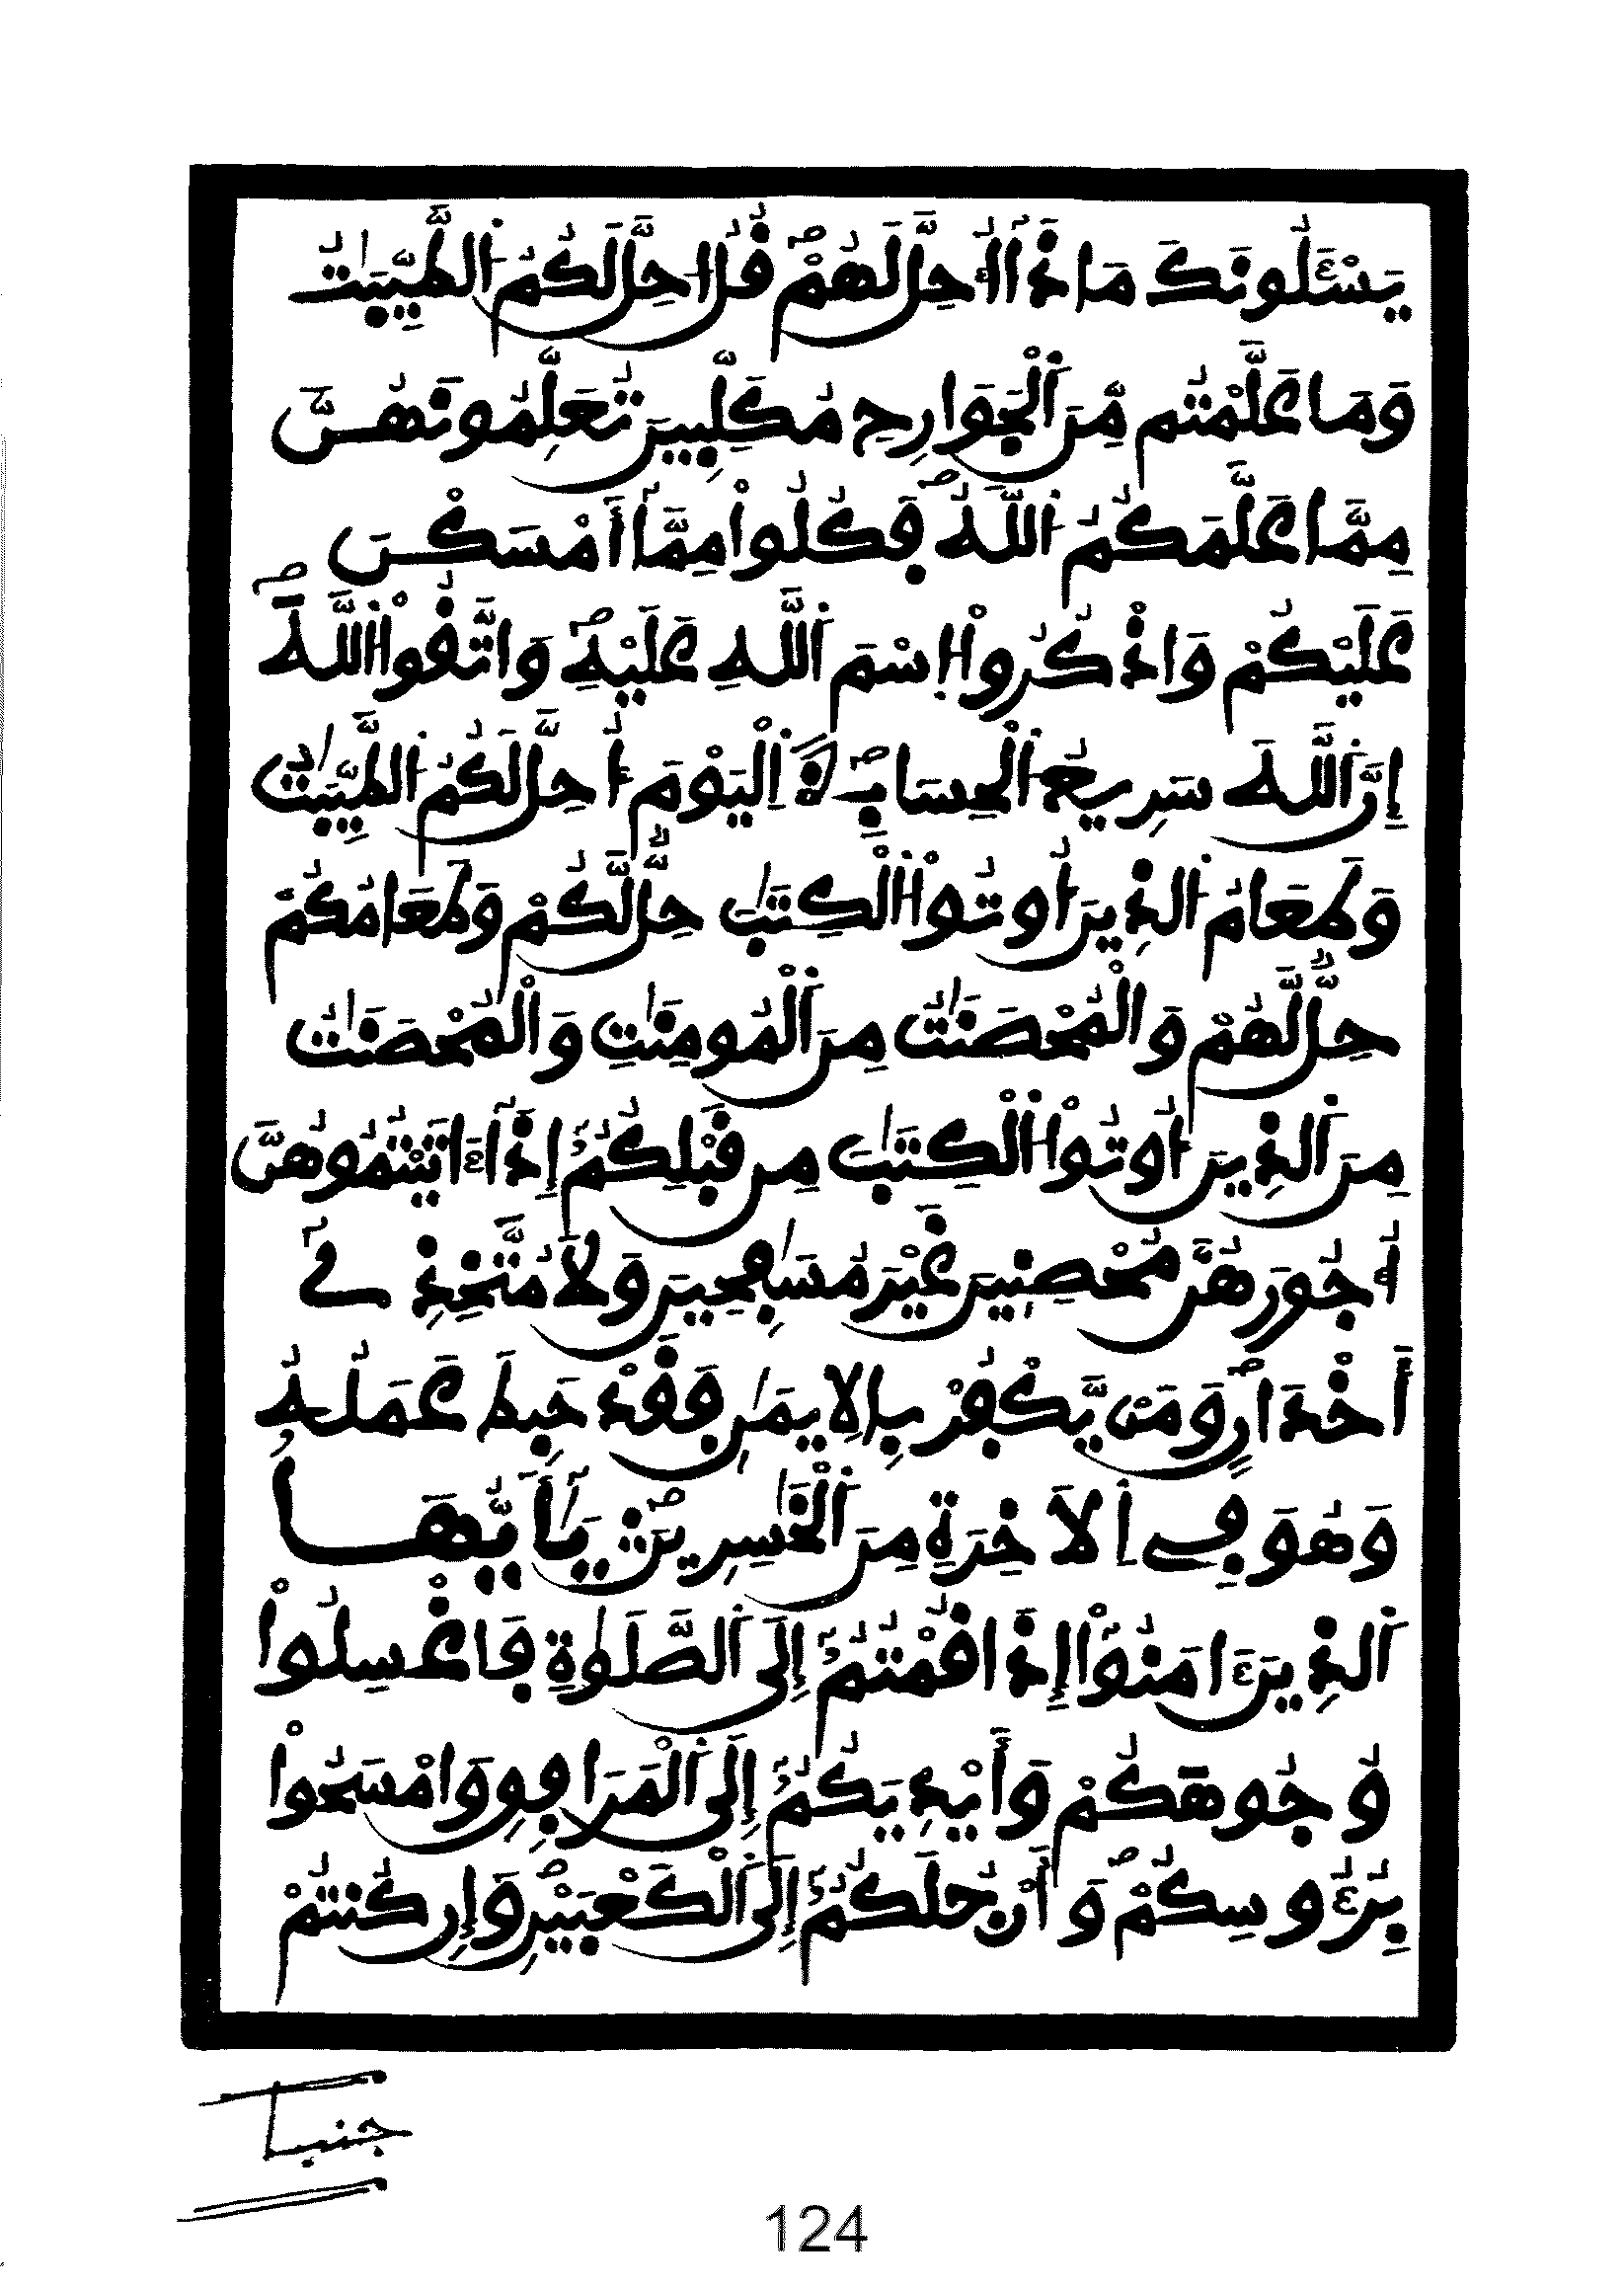 يَسْـَٔلُونَكَ مَاذَآ أُحِلَّ لَهُمْۖ قُلُ احِلَّ لَكُمُ اُ۬لطَّيِّبَٰتُ
وَمَا عَلَّمْتُم مِّنَ اَ۬لْجَوَارِحِ مُكَلِّبِينَ تُعَلِّمُونَهُنَّ
مِمَّا عَلَّمَكُمُ اُ۬للَّهُۖ فَكُلُواْ مِمَّآ أَمْسَكْنَ
عَلَيْكُمْ وَاذْكُرُواْ اُ۪سْمَ اَ۬للَّهِ عَلَيْهِۖ وَاتَّقُواْ اُ۬للَّهَۖ
إِنَّ اَ۬للَّهَ سَرِيعُ اُ۬لْحِسَابِۖ اِ۬لْيَوْمَ أُحِلَّ لَكُمُ اُ۬لطَّيِّبَٰتُ
وَطَعَامُ اُ۬لذِينَ أُوتُواْ اُ۬لْكِتَٰبَ حِلّٞ لَّكُمْ وَطَعَامُكُمْ
حِلّٞ لَّهُمْ وَالْمُحْصَنَٰتُ مِنَ اَ۬لْمُومِنَٰتِ وَالْمُحْصَنَٰتُ
مِنَ اَ۬لذِينَ أُوتُواْ اُ۬لْكِتَٰبَ مِن قَبْلِكُمُۥٓ إِذَآ ءَاتَيْتُمُوهُنَّ
أُجُورَهُنَّ مُحْصِنِينَ غَيْرَ مُسَٰفِحِينَ وَلَا مُتَّخِذِےٓ
أَخْدَانٖۖ وَمَنْ يَّكْفُرْ بِالِايمَٰنِ فَقَدْ حَبِطَ عَمَلُهُۥ
وَهُوَ فِے اِ۬لَاخِرَةِ مِنَ اَ۬لْخَٰسِرِينَۖ يَٰٓأَيُّهَا
اَ۬لذِينَ ءَامَنُوٓاْ إِذَا قُمْتُمُۥٓ إِلَى اَ۬لصَّلَوٰةِ فَاغْسِلُواْ
وُجُوهَكُمْ وَأَيْدِيَكُمُۥٓ إِلَى اَ۬لْمَرَافِقِ وَامْسَحُواْ
بِرُءُوسِكُمْۖ وَأَرْجُلَكُمُۥٓ إِلَى اَ۬لْكَعْبَيْنِۖ وَإِن كُنتُمْ
جنبا
124